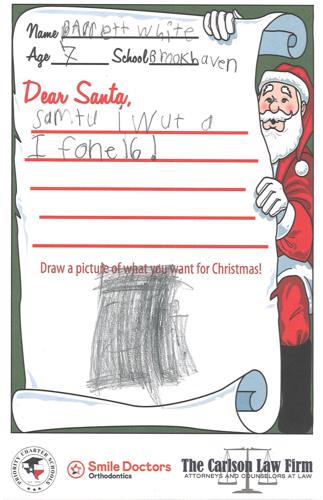 Name Barrett White
Age 7 School Brookhaven
Dear Santa,
Samtu I Wut a
I fone16!
Draw a picture of what you want for Christmas!
PRIORITY CHARTER SCHOOLS
Smile Doctors
Orthodontics
The Carlson Law Firm
ATTORNEYS AND COUNSELORS AT LAW